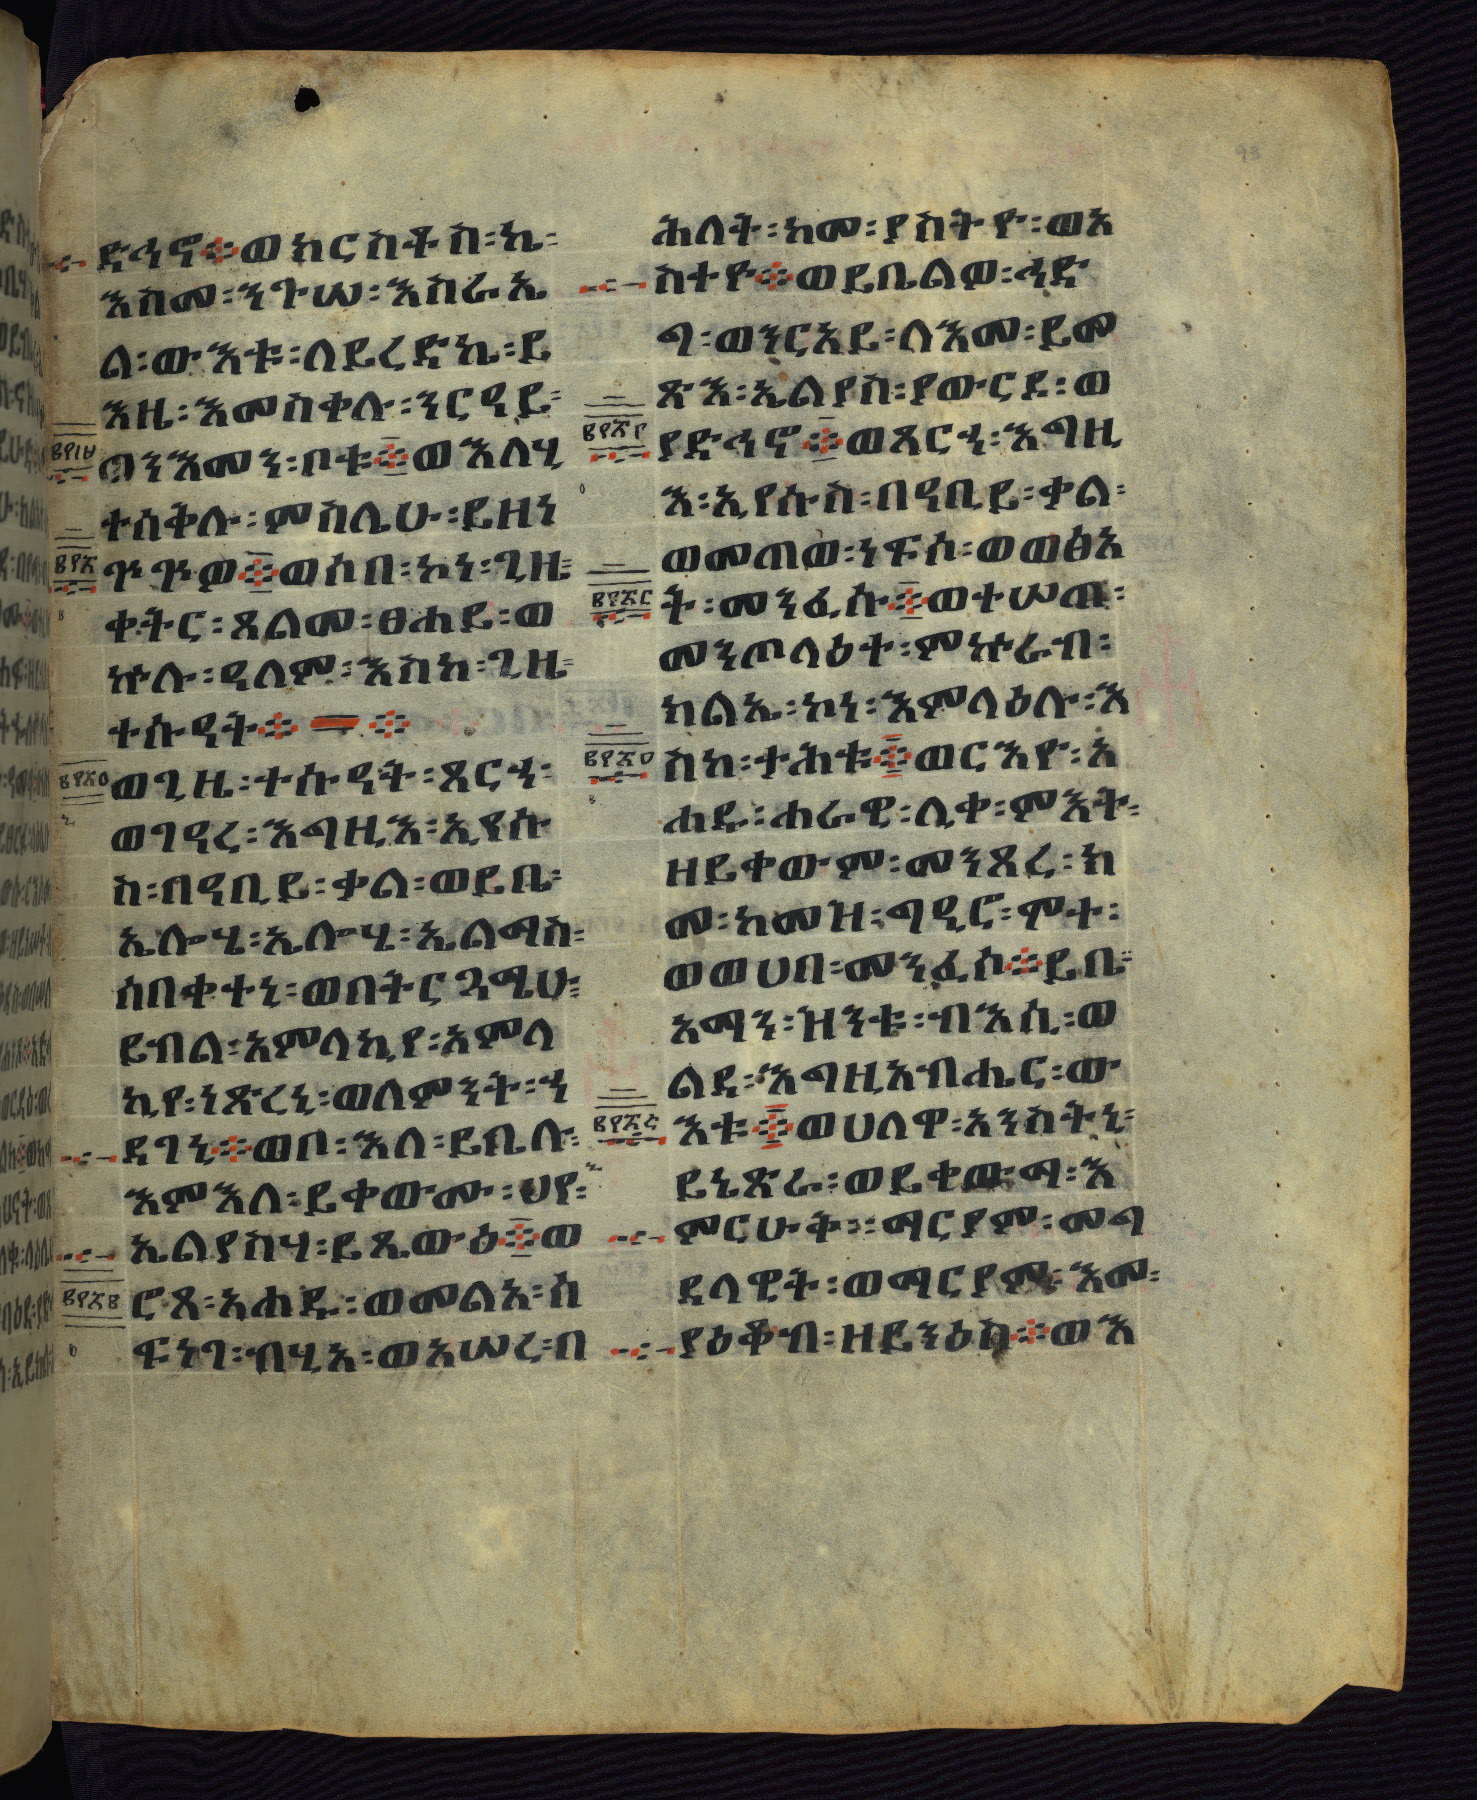 ድኅኖ፨ወክርስቶስ፡ኬ፡
እስመ፡ንጉሠ፡እስራኤ
ል፡ውእቱ፡ለይረድኬ፡ይ
እዜ፡እመስቀሉ፡ንርዓይ፡
ጠንእመን፡ቦቱ፨ወእለሂ
ተሰቅሉ፡ምስሌሁ፡ይዘነ
ጕጕዎ፨ወሶበ፡ኮነ፡ጊዜ፡
ቀትር፡ጸልመ፡ፀሐይ፡ወ
ኵሉ፡ዓለም፡እስከ፡ጊዜ፡
ተሱዓት፨ ፨
ወጊዜ፡ተሱዓት፡ጸርኀ፡
ወገዓረ፡እግዚእ፡ኢየሱ
ስ፡በዓቢይ፡ቃል፡ወይቤ፡
ኤሎሄ፡ኤሎሄ፡ኤልማስ፡
ሰበቀተኒ፡ወበትርጓሜሁ፡
ይብል፡አምላኪየ፡አምላ
ኪየ፡ነጽረኒ፡ወለምንት፡ኀ
ደገኒ፨ወቦ፡እለ፡ይቤሉ፡
እምእለ፡ይቀውሙ፡ህየ፡
ኤልያስሃ፡ይጼውዕ፨ወ
ሮጸ፡አሐዱ፡ወመልአ፡ስ
ፍነገ፡ብሂአ፡ወአሠረ፡በ
ሕለት፡ከመ፡ያስትዮ፡ወአ
ስተዮ፨ወይቤልዎ፡ኅድ
ግ፡ወንርአይ፡ለእመ፡ይመ
ጽእ፡ኤልያስ፡ያውርዶ፡ወ
ያድኅኖ፨ወጸርኀ፡እግዚ
እ፡ኢየሱስ፡በዓቢይ፡ቃል፡
ወመጠወ፡ነፍሶ፡ወወፅአ
ት፡መንፈሱ፨ወተሠጠ፡
መንጦላዕተ፡ምኵራብ፡
ክልኤ፡ኮነ፡እምላዕሉ፡እ
ስከ፡ታሕቱ፨ወርእዮ፡አ
ሐዱ፡ሐራዊ፡ሊቀ፡ምእት፡
ዘይቀውም፡መንጸረ፡ከ
መ፡ከመዝ፡ግዒሮ፡ሞተ፡
ወወሀበ፡መንፈሶ፨ይቤ፡
አማን፡ዝንቱ፡ብእሲ፡ወ
ልደ፡እግዚአብሔር፡ው
እቱ፨ወሀለዋ፡አንስትኒ፡
ይኔጽራ፡ወይቀውማ፡እ
ምርሁቅ፡፡ማርያም፡መግ
ደላዊት፡ወማርያም፡እመ፡
ያዕቆብ፡ዘይንዕስ፨ወእ